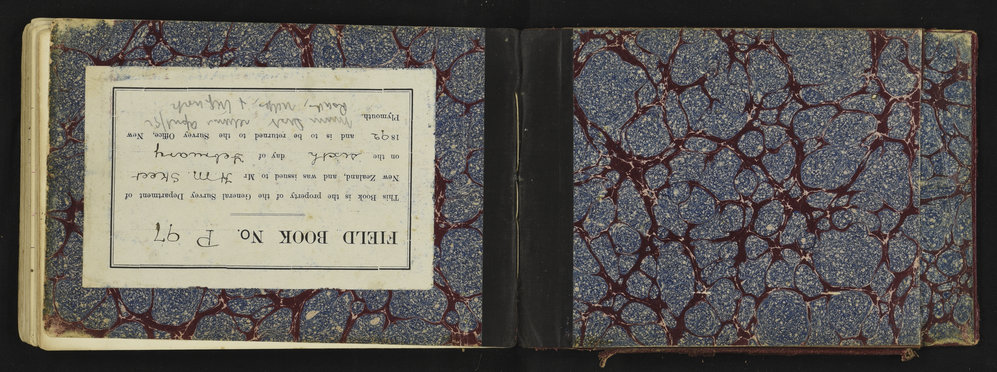 FIELD BOOK No. P 97
This Book is the property of the General Survey Department of
New Zealand, and was issued to Mr H. M. Skeet
on the sixth day of February
1892 and is to be returned to the Survey Office, New
Plymouth.